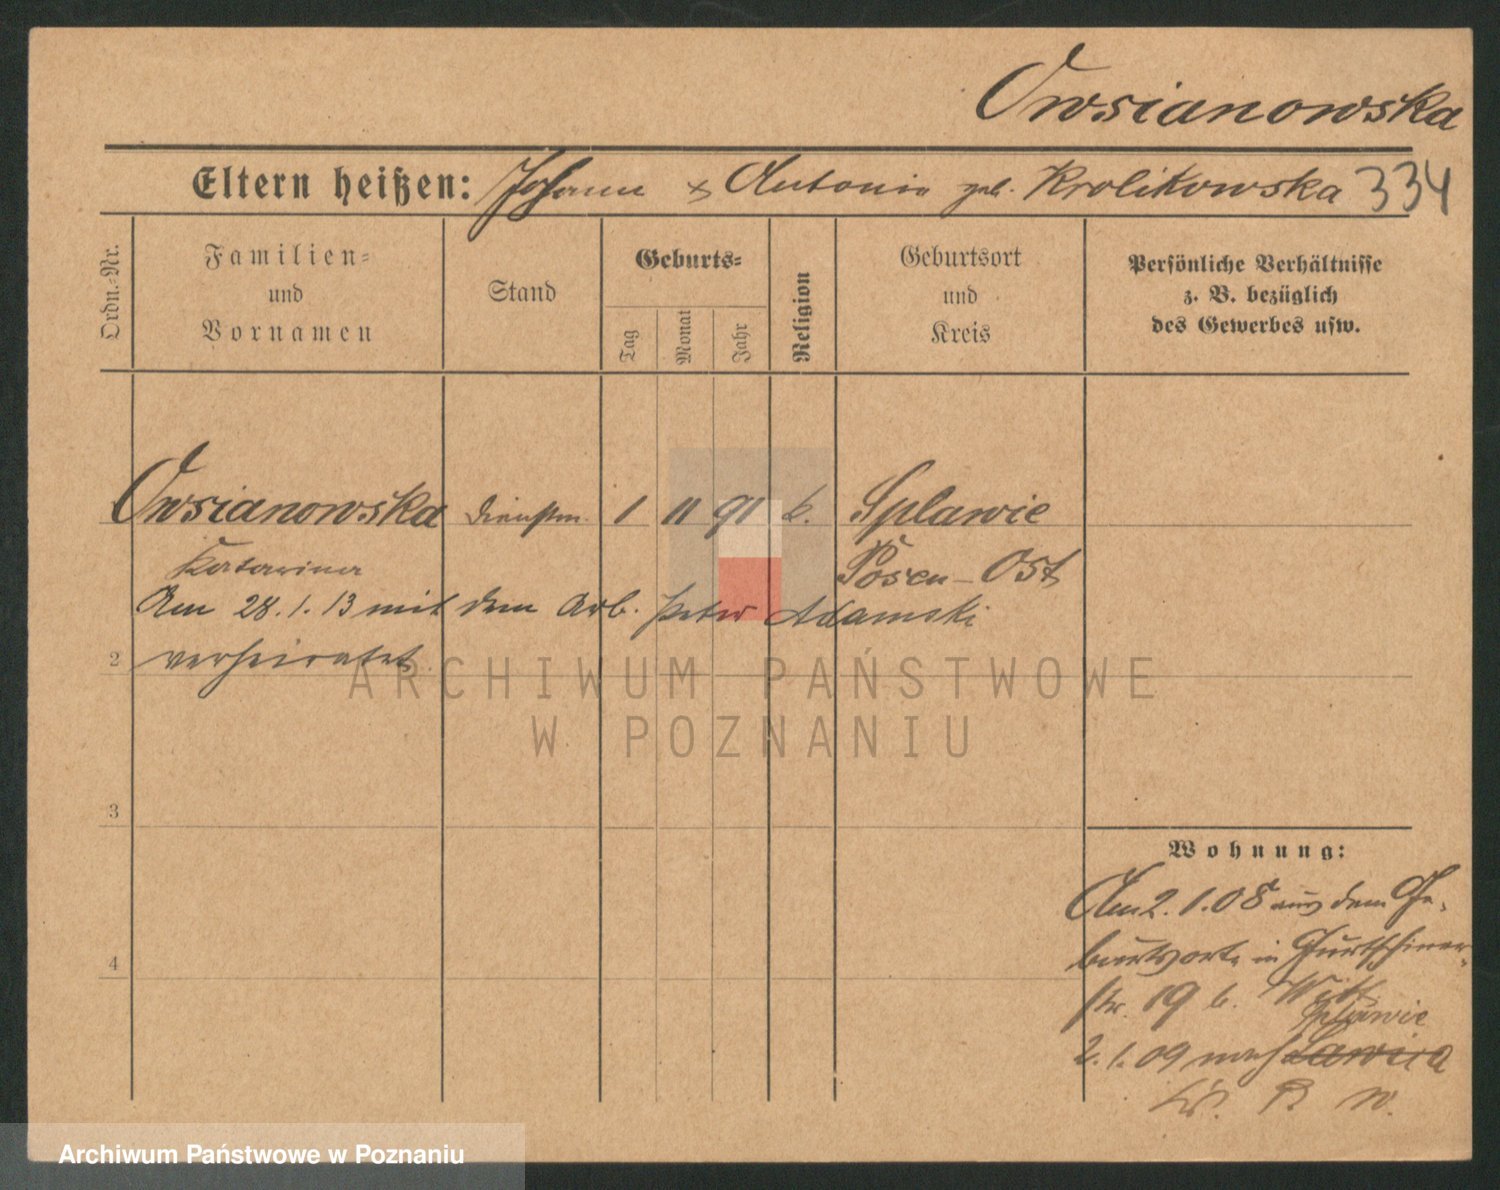 Owsianowska
Eltern heißen: Johann + Antonie geb. Krolikowska 334
Ordn.-Nr.
Familien-
und
Vornamen
Stand
Geburts-
Tag
Monat
Jahr
Religion
Geburtsort
und
Kreis
Persönliche Verhältnisse
z. B. bezüglich
des Gewerbes usw.
Owsianowska Dienstm. 1 11 91 k. Splawie
Katarina Posen-Ost
Am 28.1.13 mit dem Arb. Peter Adamski
2 verheiratet
3
4
Wohnung:
Am 2.1.08 aus dem Ge-
burtsorte in Gurtschiner-
str. 19 b. Witt
Splawie
2.1.09 nach Lawica
P. W.
ARCHIWUM PAŃSTWOWE
W POZNANIU
Archiwum Państwowe w Poznaniu